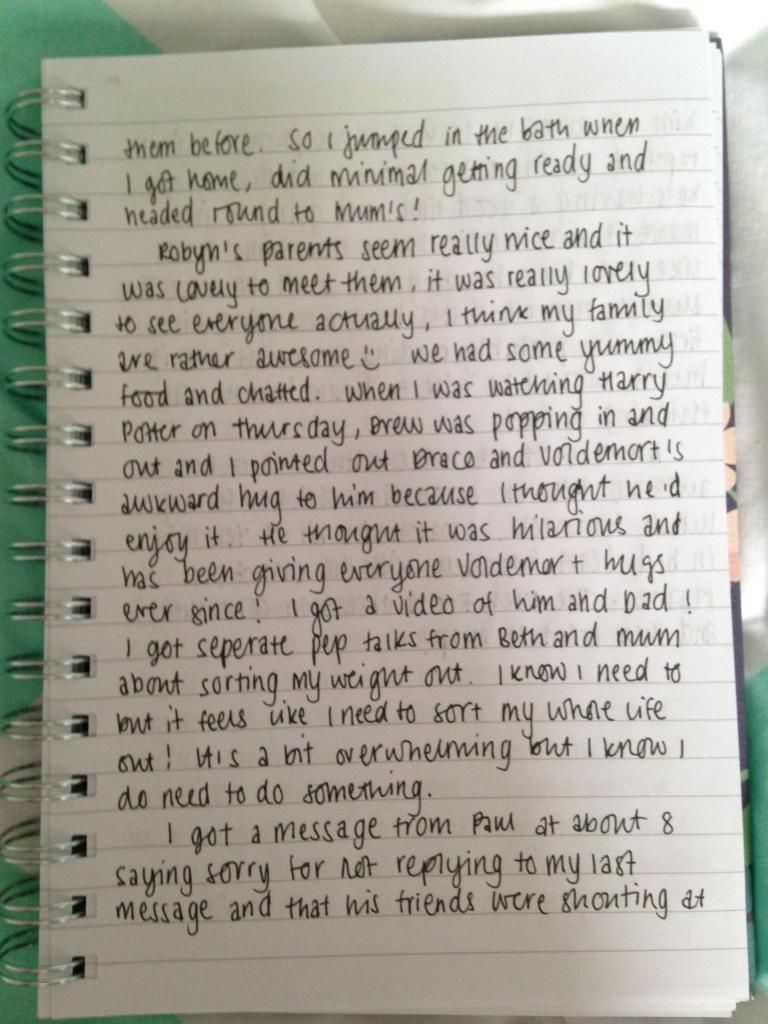 them before. So I jumped in the bath when
I got home, did minimal getting ready and
headed round to Mum's!
Robyn's parents seem really nice and it
was lovely to meet them, it was really lovely
to see everyone actually, I think my family
are rather awesome :) We had some yummy
food and chatted. When I was watching Harry
Potter on Thursday, Drew was popping in and
out and I pointed out Draco and Voldemort's
awkward hug to him because I thought he'd
enjoy it. He thought it was hilarious and
has been giving everyone Voldemort hugs
ever since! I got a video of him and Dad!
I got seperate pep talks from Beth and mum
about sorting my weight out. I know I need to
but it feels like I need to sort my whole life
out! It's a bit overwhelming but I know I
do need to do something.
I got a message from Paul at about 8
saying sorry for not replying to my last
message and that his friends were shouting at